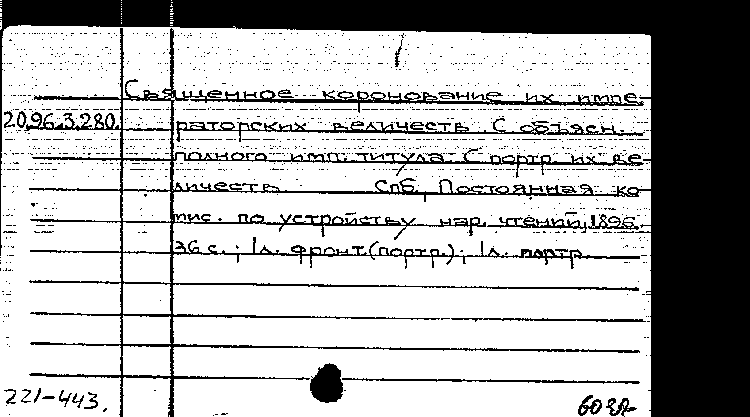 Священное коронование их импе-
20.96.3.280. раторских величеств. С объясн.
полного имп. титула. С портр. их ве-
личеств. СПб, Постоянная ко-
мис. по устройству нар. чтений, 1896.
36 с.; 1 л. фронт. (портр.); 1 л. портр.
221-443.